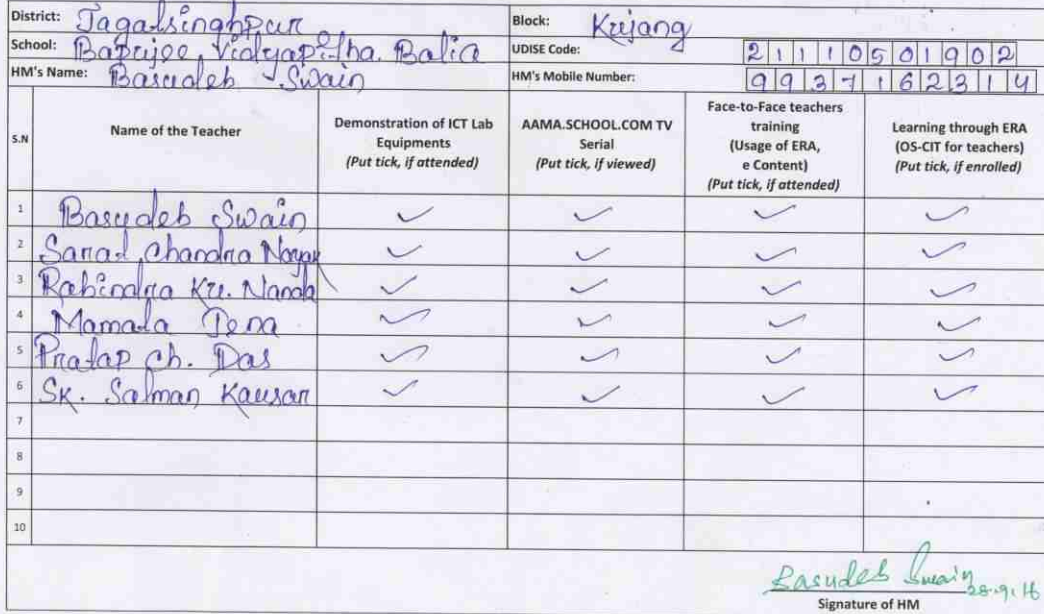 District: Jagatsinghpur Block: Kujang
School: Bapujee Vidyapitha, Balia UDISE Code: 21110501902
HM's Name: Basudeb Swain HM's Mobile Number: 9937162314
S.N Name of the Teacher Demonstration of ICT Lab Equipments (Put tick, if attended) AAMA.SCHOOL.COM TV Serial (Put tick, if viewed) Face-to-Face teachers training (Usage of ERA, e Content) (Put tick, if attended) Learning through ERA (OS-CIT for teachers) (Put tick, if enrolled)
1 Basudeb Swain ✓ ✓ ✓ ✓
2 Sarat Chandra Nayak ✓ ✓ ✓ ✓
3 Rabindra Ku. Nanda ✓ ✓ ✓ ✓
4 Mamata Jena ✓ ✓ ✓ ✓
5 Pratap ch. Das ✓ ✓ ✓ ✓
6 Sk. Salman Kausar ✓ ✓ ✓ ✓
7
8
9
10
Basudeb Swain 28.9.16
Signature of HM